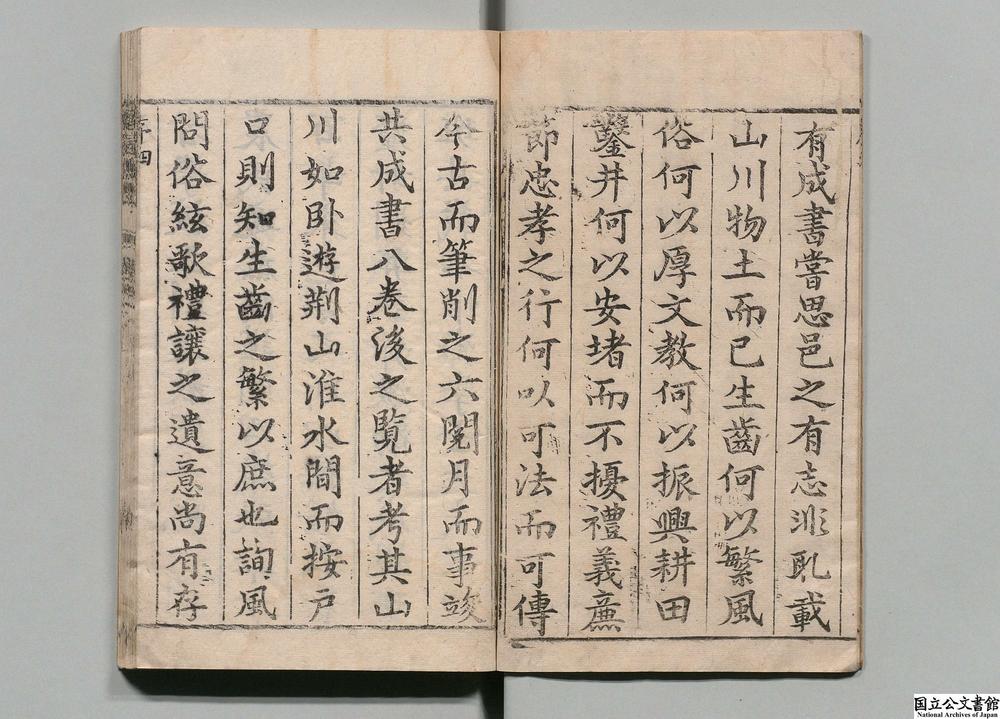 有成書嘗思邑之有志非止載
山川物土而已生齒何以繁風
俗何以厚文教何以振興耕田
鑿井何以安堵而不擾禮義廉
節忠孝之行何以可法而可傳
今古而筆削之六閱月而事竣
共成書八卷後之覽者考其山
川如卧遊荆山淮水間而按戶
口則知生齒之繁以庶也詢風
問俗絃歌禮讓之遺意尚有存
序四
国立公文書館
National Archives of Japan